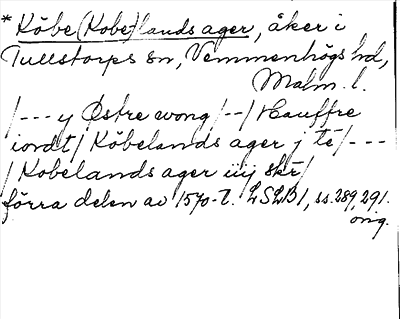 * Köbe(Kobe)lands ager, åker i
Tullstorps sn, Vemmenhögs hd,
Malm. l.
/--- y Østre wong /--/ Hauffre
iordt/ Köbelands ager j té/---
/ Kobelands ager iiij skr/
förra delen av 1570-t. LSLB1, ss. 289, 291.
orig.